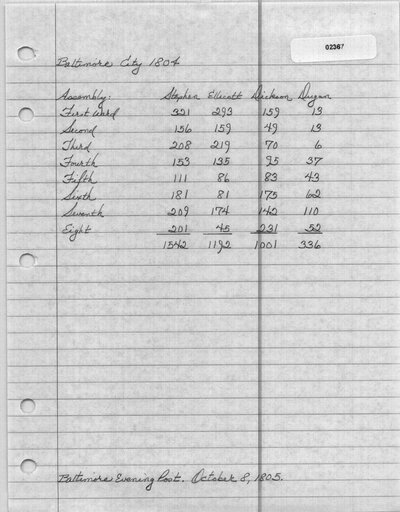 02367
Baltimore City 1804
Assembly: Stephen Ellicott Dickson Dugan
First Ward 321 293 159 13
Second 156 159 49 13
Third 208 219 70 6
Fourth 153 135 95 37
Fifth 111 86 83 43
Sixth 181 81 175 62
Seventh 209 174 142 110
Eight 201 45 231 52
1542 1192 1001 336
Baltimore Evening Post. October 8, 1805.